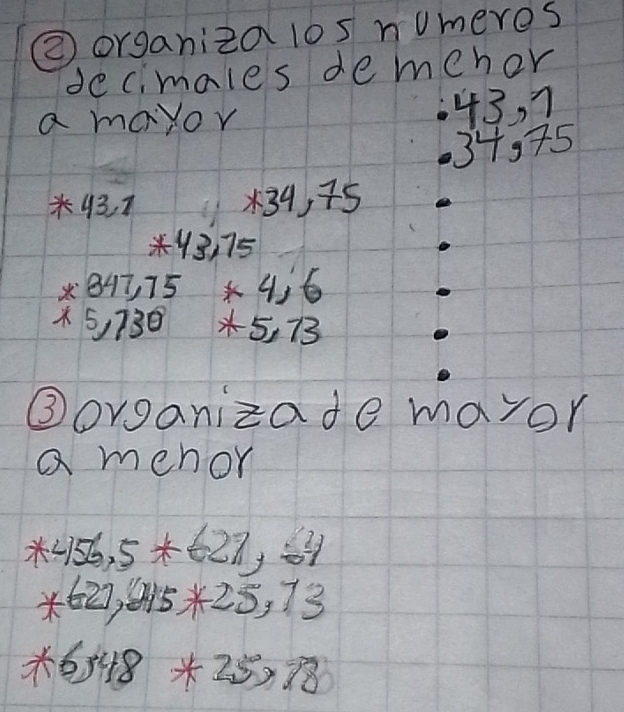 ② organiza los numeros
decimales de menor
a mayor
• 43,1
• 34,75
* 43,1 * 34,75
* 43,75
* 847,75 * 4,6
* 5,730 * 5,73
③ organiza de mayor
a menor
* 456,5 * 627, 64
* 25,13
* 6,48 * 25,78